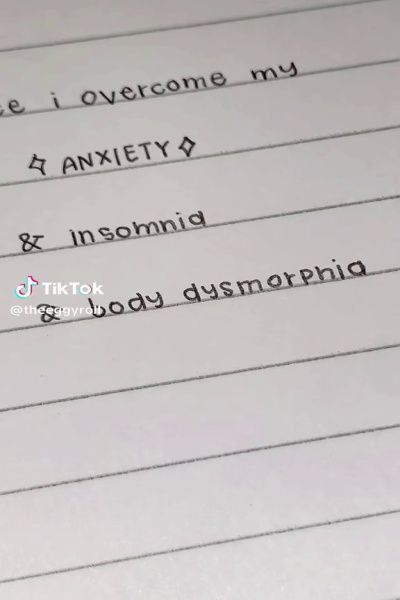 i overcome my
ANXIETY
& insomnia
& body dysmorphia
TikTok